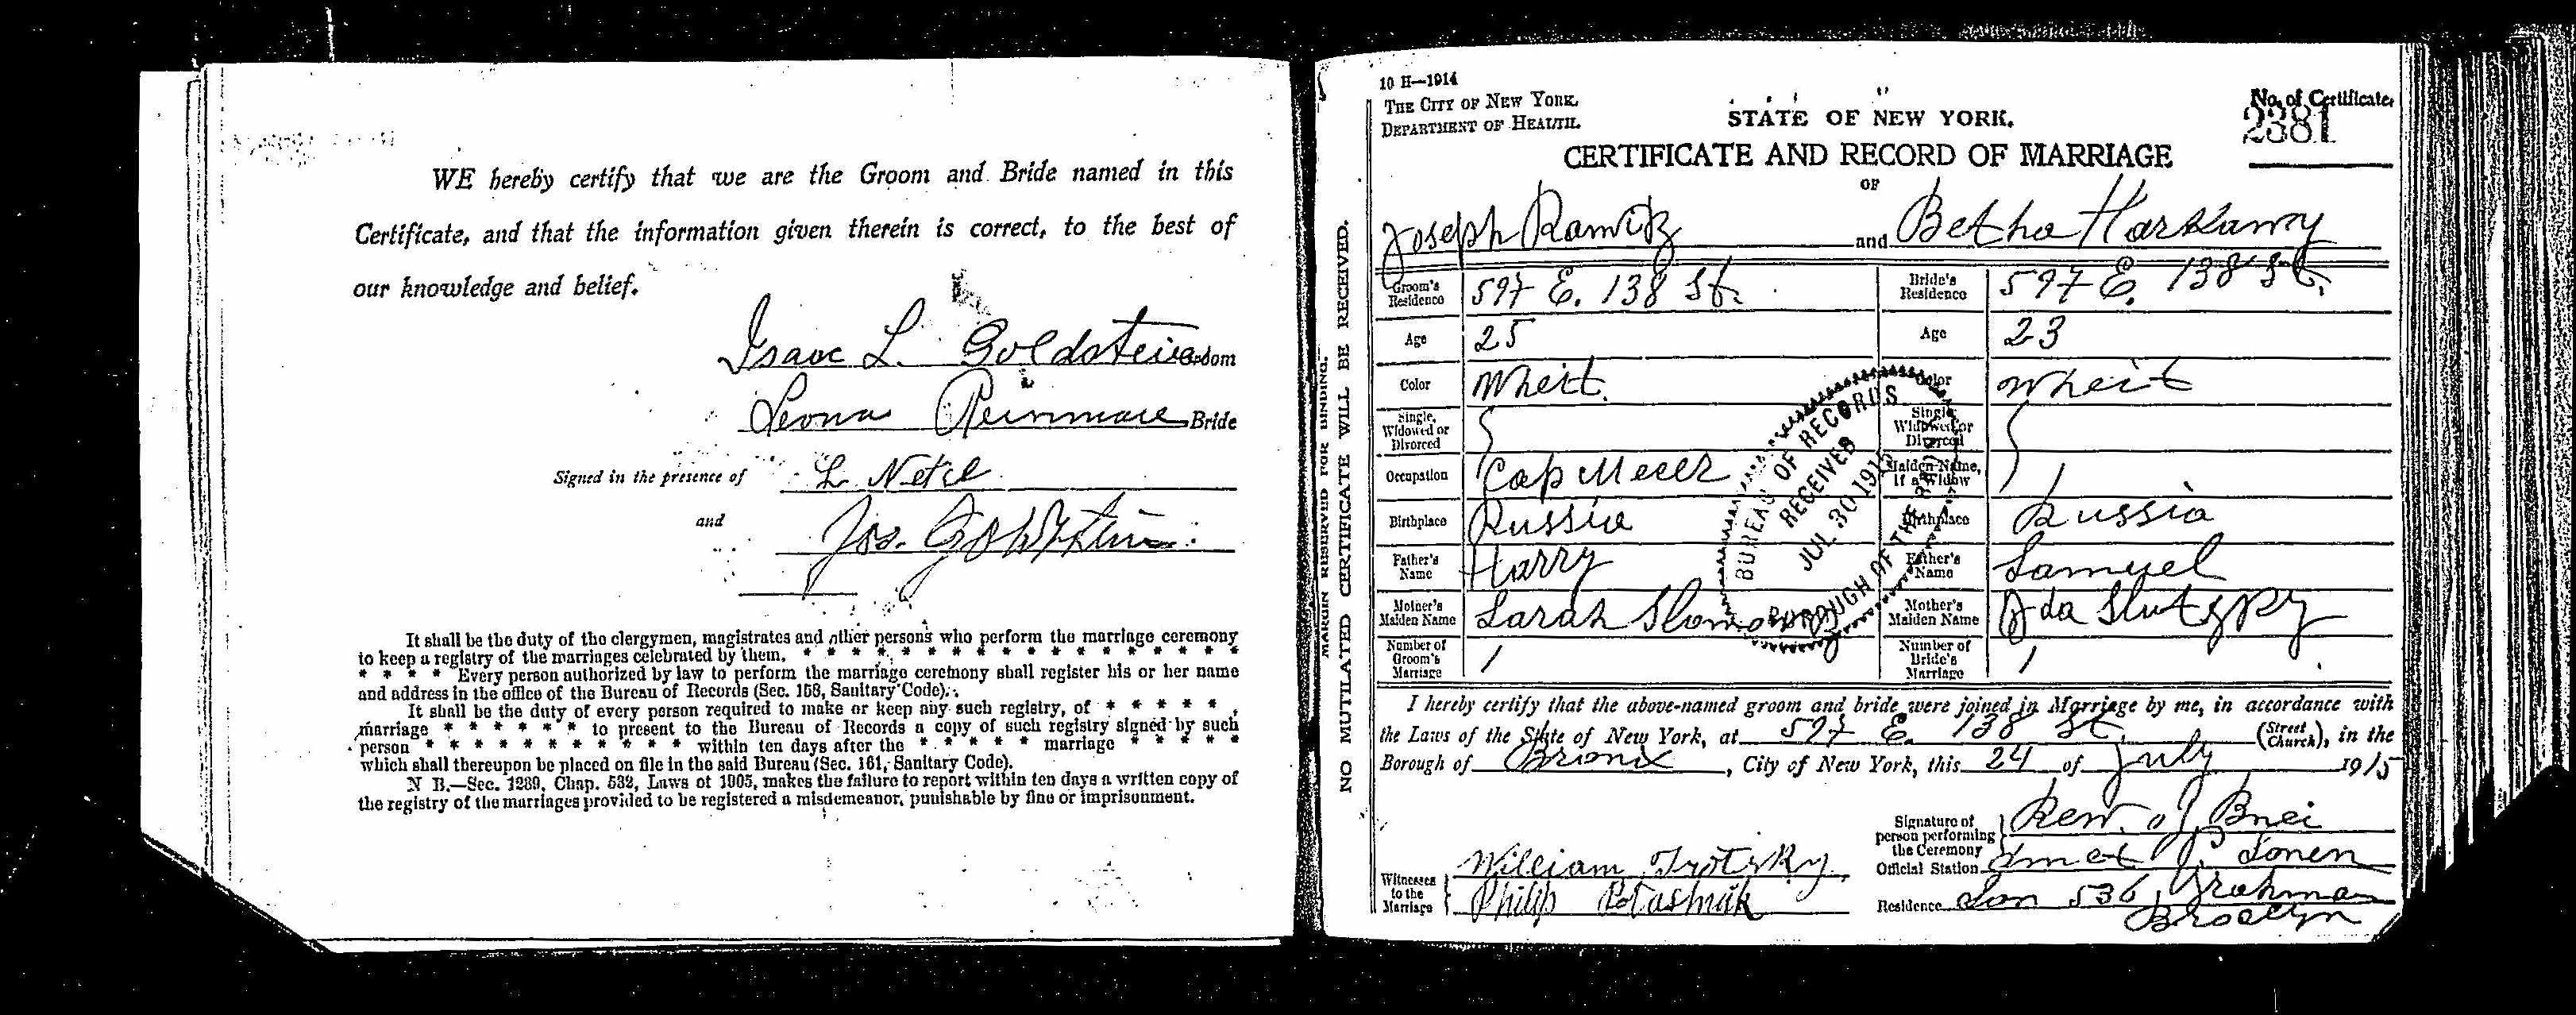 WE hereby certify that we are the Groom and Bride named in this
Certificate, and that the information given therein is correct, to the best of
our knowledge and belief.
Isaac L. Goldstein Groom
Leona Bride
Signed in the presence of L.
and Jos. Goldstein
It shall be the duty of the clergymen, magistrates and other persons who perform the marriage ceremony
to keep a registry of the marriages celebrated by them. * * * * * * * * * * * * * * * *
* * * * Every person authorized by law to perform the marriage ceremony shall register his or her name
and address in the office of the Bureau of Records (Sec. 158, Sanitary Code).
It shall be the duty of every person required to make or keep any such registry, of * * * * *
marriage * * * * * * to present to the Bureau of Records a copy of such registry signed by such
person * * * * * * * * * * * within ten days after the * * * * * marriage * * * * *
which shall thereupon be placed on file in the said Bureau (Sec. 161, Sanitary Code).
N B.—Sec. 1239, Chap. 532, Laws of 1905, makes the failure to report within ten days a written copy of
the registry of the marriages provided to be registered a misdemeanor, punishable by fine or imprisonment.
MARGIN RESERVED FOR BINDING.
NO MUTILATED CERTIFICATE WILL BE RECEIVED.
10 H—1914
THE CITY OF NEW YORK.
DEPARTMENT OF HEALTH.
STATE OF NEW YORK.
No. of Certificate
2381
CERTIFICATE AND RECORD OF MARRIAGE
OF
Joseph and Betha Harkawy
Groom's Residence 597 E. 138 St. Bride's Residence 597 E. 138 St.
Age 25 Age 23
Color Wheit Color Wheit
Single, Widowed or Divorced S Single, Widowed or Divorced S
Occupation Cap Maden Name, if a Widow
Birthplace Russia Birthplace Russia
Father's Name Harry Father's Name Samuel
Mother's Maiden Name Sarah Mother's Maiden Name Ida Slutzky
Number of Groom's Marriage 1 Number of Bride's Marriage 1
BUREAU OF RECORDS
RECEIVED
JUL 30 1915
BOROUGH OF THE BRONX
I hereby certify that the above-named groom and bride were joined in Marriage by me, in accordance with
the Laws of the State of New York, at 597 E. 138 St. (Street Church), in the
Borough of Bronix, City of New York, this 24 of July 1915
Signature of person performing the Ceremony Rew. Bnei
Official Station
Witnesses to the Marriage William Trotsky
Philip Potashnik
Residence 536
Brooclyn